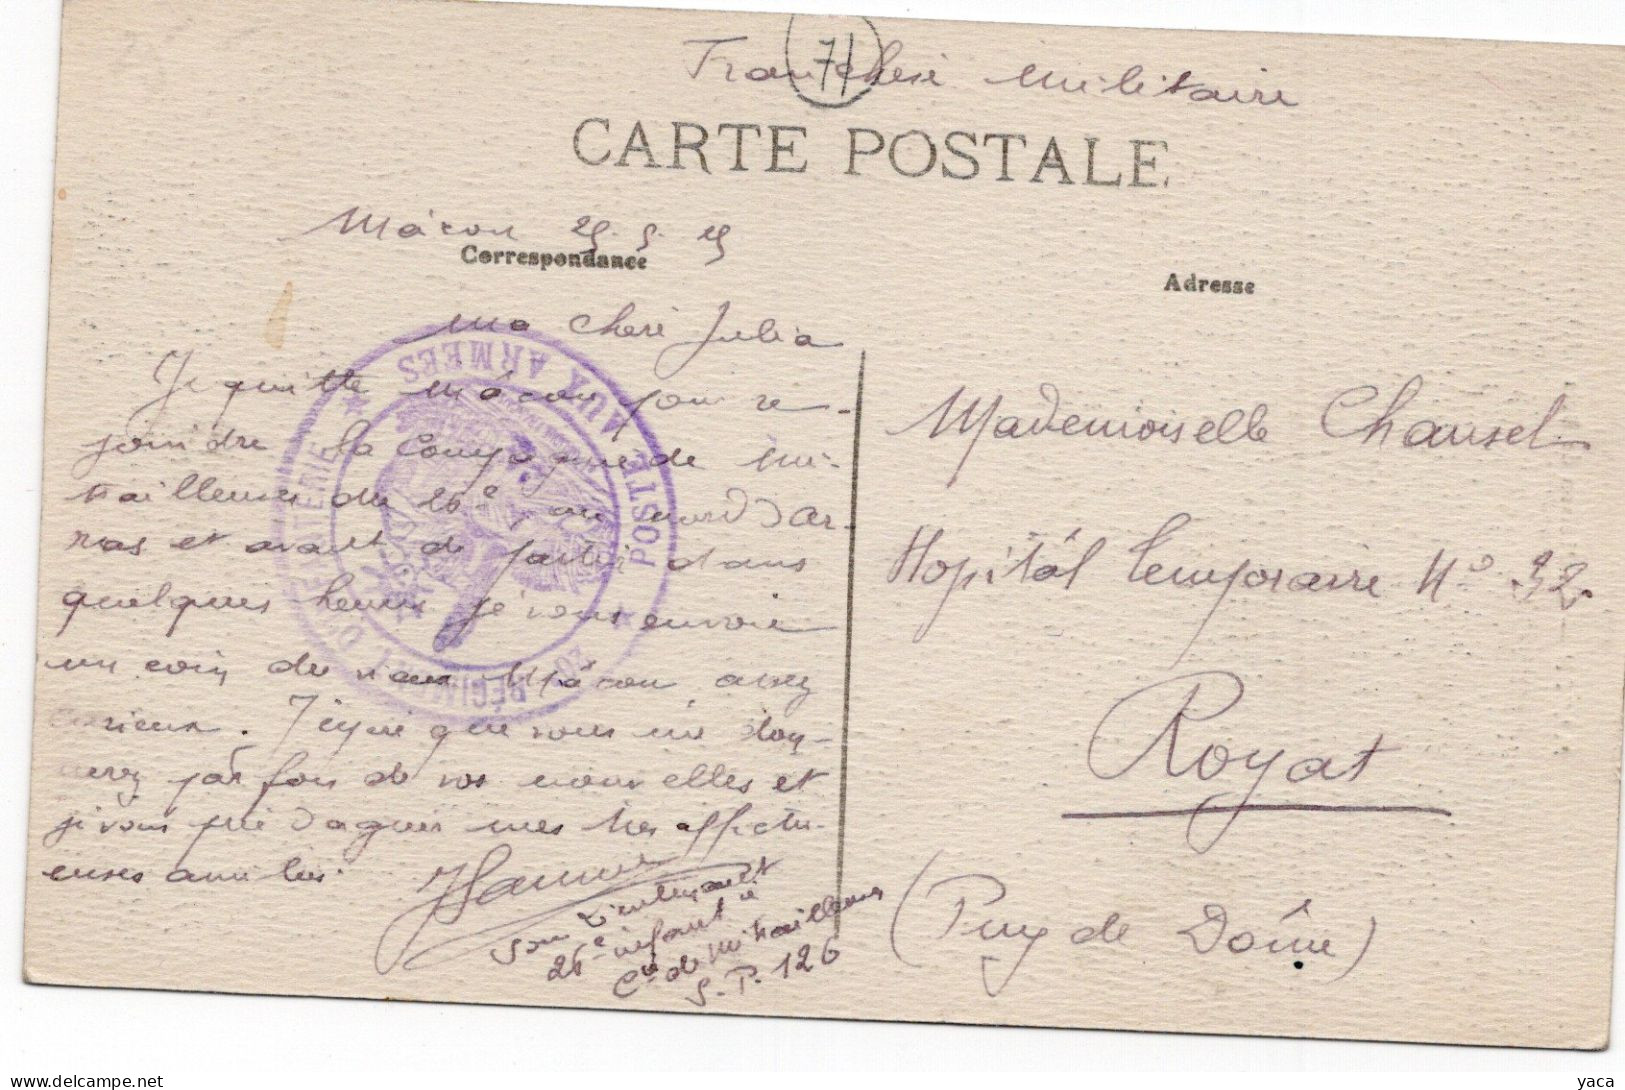 71
Franchise Militaire
CARTE POSTALE
Mâcon 25.5.15
Correspondance
Adresse
Ma chère Julia
Je quitte Mâcon pour re-
joindre la Compagnie de mi-
trailleuses du 26e, au nord d'Ar-
ras et avant de partir dans
quelques heures je vous envoie
un coin du vieux Mâcon assez
curieux. J'espère que vous me don-
nerez parfois de vos nouvelles et
je vous prie d'agréer mes très affectu-
euses amitiés.
sous lieutenant
26e infanterie
Cie de Mitrailleuses
S.P. 126
Mademoiselle
Hopitâl temporaire No 32
Royat
(Puy de Dôme)
RÉGIMENT D'INFANTERIE
POSTE AUX ARMEES
delcampe.net
yaca